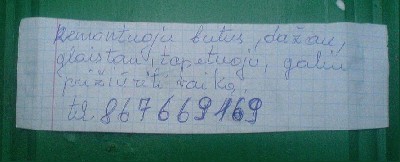 Remontuoju butus, dažau,
glaistau, tapetuoju, galiu
prižiūrėti vaiką.
tel. 867669169